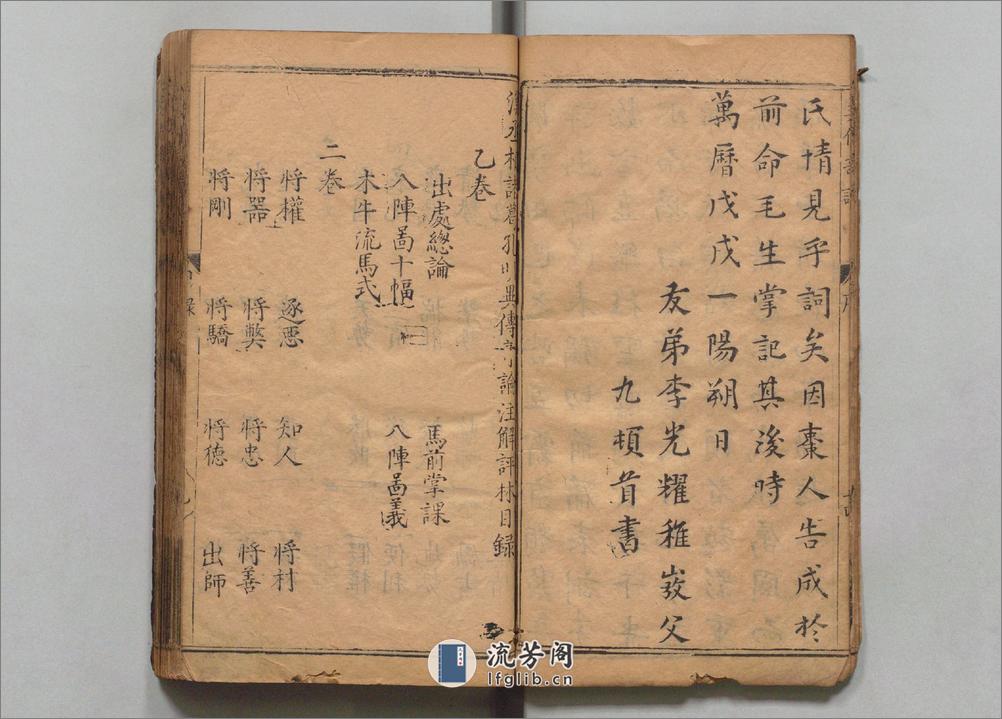 氏情見乎詞矣因棗人告成於
前命毛生掌記其後時
萬曆戊戌一陽朔日
友弟李光耀稚嶷父
九頓首書
漢丞相諸葛孔明異傳奇論注解評林目錄
乙卷
出處總論 馬前掌課
入陣啚十幅 八陣啚義
木牛流馬式
二卷
將權 逐惡 知人 將材
將器 將獘 將忠 將善
將剛 將驕 將德 出師
流芳阁
lfglib.cn